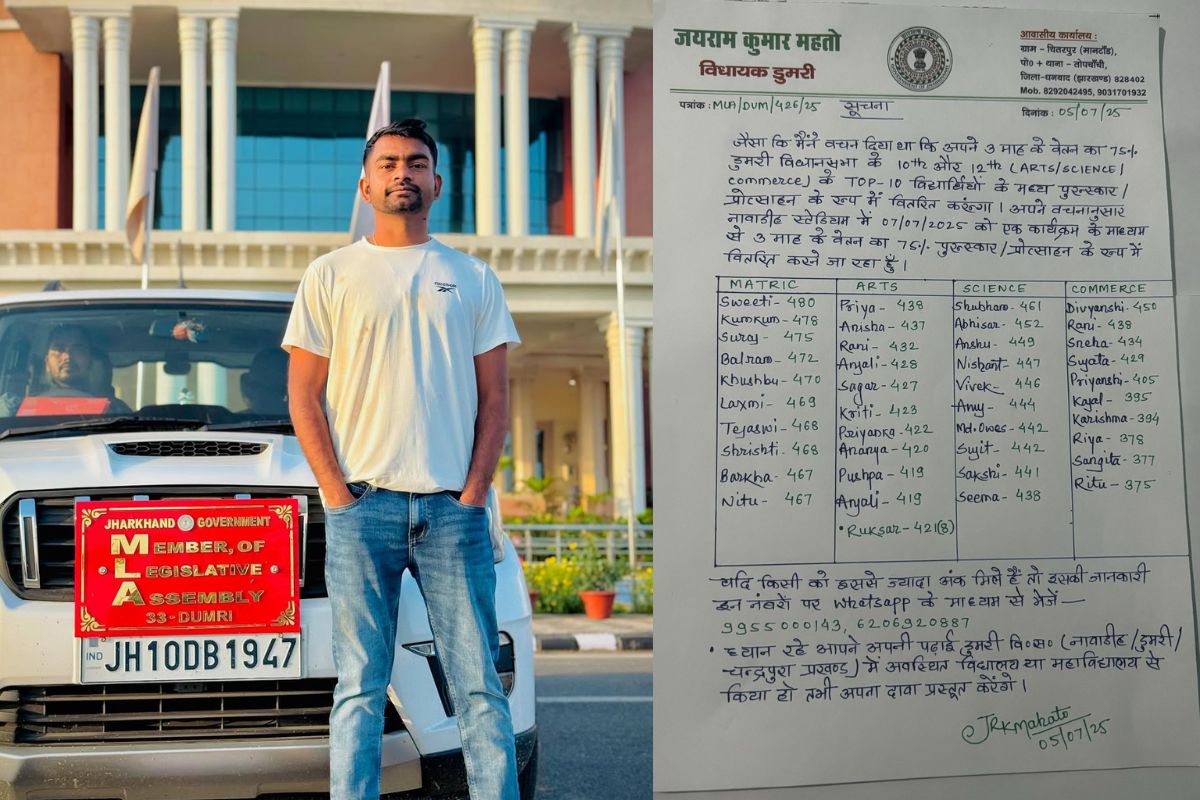 Reebok
JHARKHAND GOVERNMENT
MEMBER, OF
LEGISLATIVE
ASSEMBLY
33-DUMRI
IND JH10DB1947
जयराम कुमार महतो
विधायक डुमरी
आवासीय कार्यालय :
ग्राम - चितरपुर (मानटाँड),
पो० + थाना - तोपचाँची,
जिला-धनबाद (झारखण्ड) 828402
Mob. 8292042495, 9031701932
पत्रांक : MLA/DUM/426/25
सूचना
दिनांक : 05/07/25
जैसा कि मैंने वचन दिया था कि अपने 3 माह के वेतन का 75%
डुमरी विधानसभा के 10th और 12th (ARTS/SCIENCE/
commerce) के TOP-10 विद्यार्थियों के मध्य पुरुस्कार/
प्रोत्साहन के रूप में वितरित करूंगा। अपने वचनानुसार
नावाडीह स्टेडियम में 07/07/2025 को एक कार्यक्रम के माध्यम
से 3 माह के वेतन का 75% पुरुस्कार/प्रोत्साहन के रूप में
वितरित करने जा रहा हूँ।
MATRIC ARTS SCIENCE COMMERCE
Sweeti- 480 Priya - 438 Shubham- 461 Divyanshi- 450
Kumkum- 478 Anisha- 437 Abhisar - 452 Rani - 438
Suraj - 475 Rani - 432 Anshu - 449 Sneha - 434
Balram - 472 Anjali - 428 Nishant - 447 Sujata - 429
Khushbu - 470 Sagar - 427 Vivek - 446 Priyanshi- 405
Laxmi - 469 Kriti - 423 Anuj - 444 Kajal - 395
Tejaswi - 468 Priyanka - 422 Md. Owes - 442 Karishma - 394
Shrishti - 468 Ananya - 420 Sujit - 442 Riya - 378
Barkha - 467 Pushpa - 419 Sakshi - 441 Sangita - 377
Nitu - 467 Anjali - 419 Seema - 438 Ritu - 375
• Ruksar - 421(8)
यदि किसी को इससे ज्यादा अंक मिले हैं तो इसकी जानकारी
इन नंबरों पर Whatsapp के माध्यम से भेजें —
9955000143, 6206920887
• ध्यान रहे आपने अपनी पढ़ाई डुमरी वि०स० (नावाडीह/डुमरी/
चन्द्रपुरा प्रखण्ड) में अवस्थित विद्यालय या महाविद्यालय से
किया हो तभी अपना दावा प्रस्तूत करेंगे।
JRKmahato
05/07/25